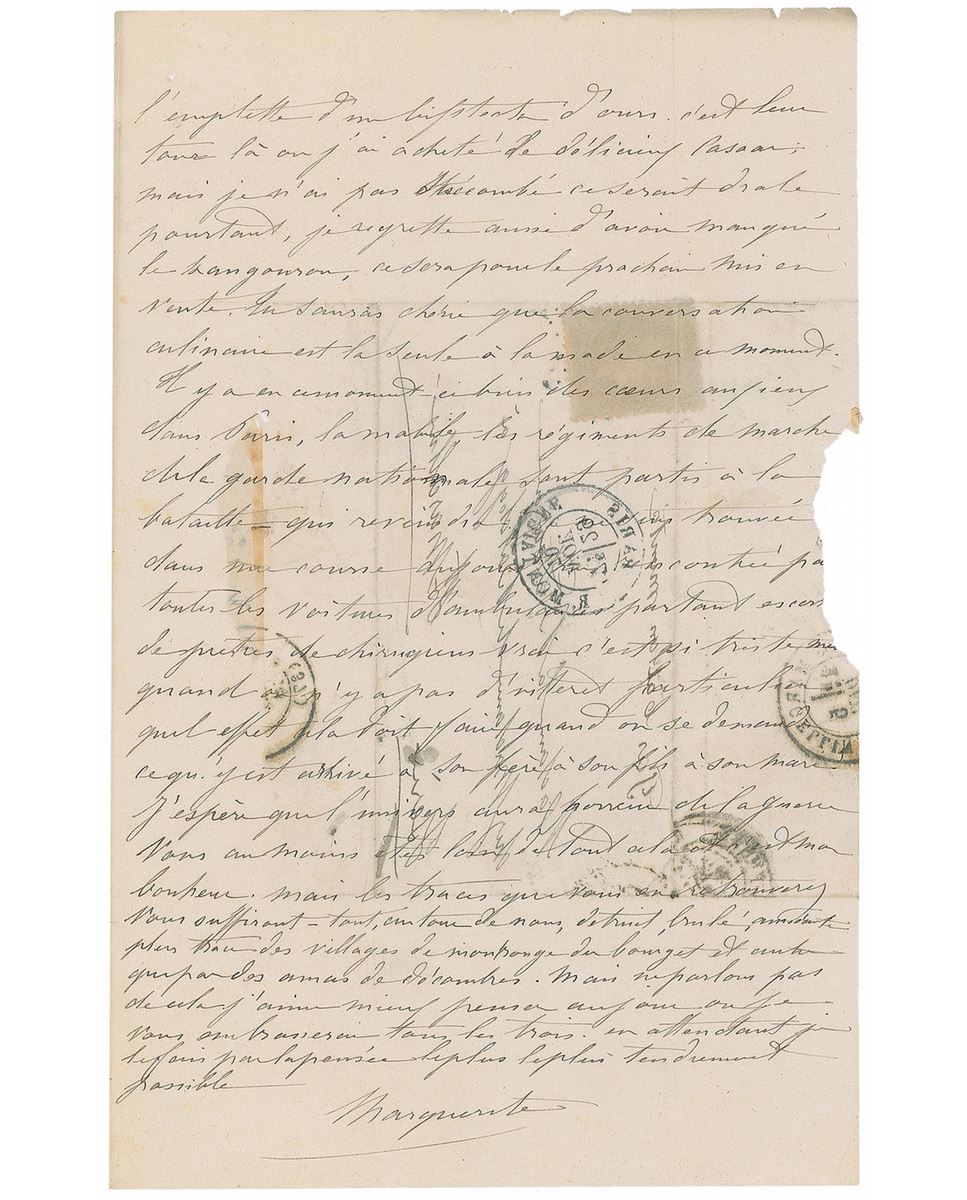 l'emplette d'un bifsteck d'ours. c'est leur
tour là on j'ai acheté de délicieux
mais je n'ai pas succombé ce serait drole
pourtant, je regrette aussi d'avoir manqué
le kangourou, ce sera pour le prochain mis en
vente. tu sauras chérie que la conversation
culinaire est la seule à la mode en ce moment.
Il y a en ce moment ci bien des cœurs anxieux
dans Paris, la mobile les régiments de marche
de la garde nationale sont partis à la
bataille – qui reviendra me suis trouvée
dans une course
toutes les voitures d'ambulances partant
de prêtres de chirurgiens vrai c'est si triste
quand on n'y a pas d'intéret particulier
quel effet cela doit faire quand on se demande
ce qu'y est arrivé à son père à son fils à son mari
J'espère que l'univers aura horreur de la guerre
Vous au moins êtes loin de tout cela et c'est mon
bonheur. mais les traces que vous en retrouverez
vous suffiront – tout, autour de nous, détruit, brulé,
plus trace des villages de montrouge du bourget et autre
que par des amas de décombres. Mais ne parlons pas
de cela j'aime mieux penser au jour ou je
vous embrasserai tous les trois. en attendant je
le fais par la pensée le plus le plus tendrement
possible
Marguerite
PARIS
R. MONTAIGNE